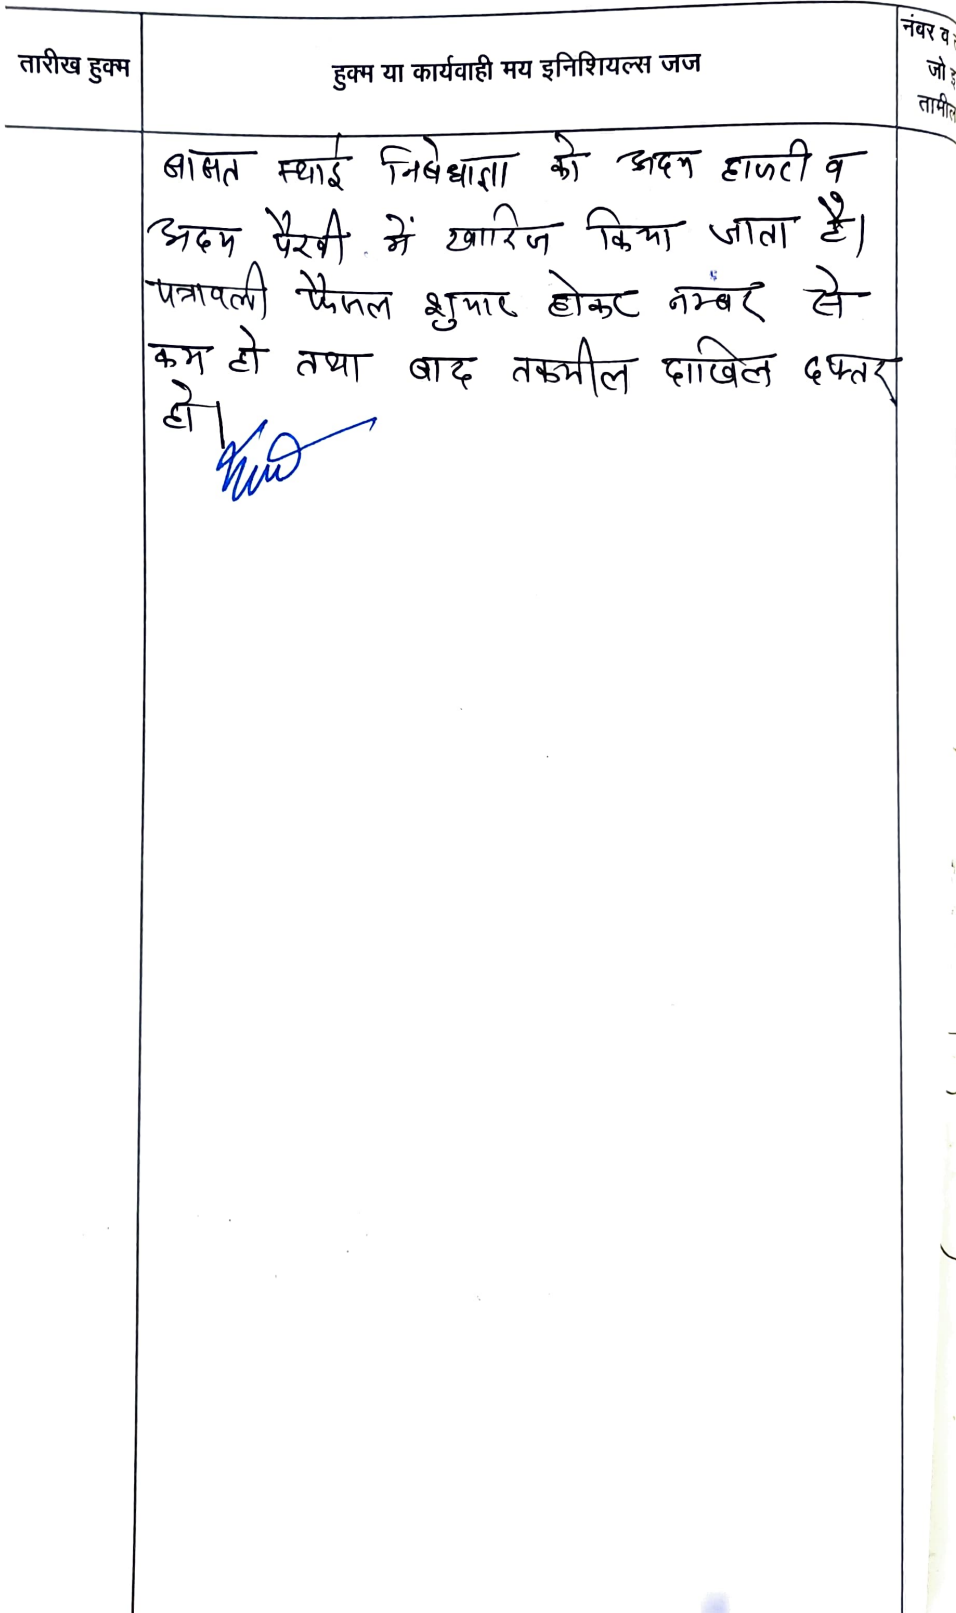 तारीख हुक्म
हुक्म या कार्यवाही मय इनिशियल्स जज
नंबर व
जो
तामील
बाबत स्थाई निषेधाज्ञा को अदम हाजरी व
अदम पैरवी में खारिज किया जाता है।
पत्रावली फैसल शुमार होकर नम्बर से
कम हो तथा बाद तकमील दाखिल दफ्तर
हो।